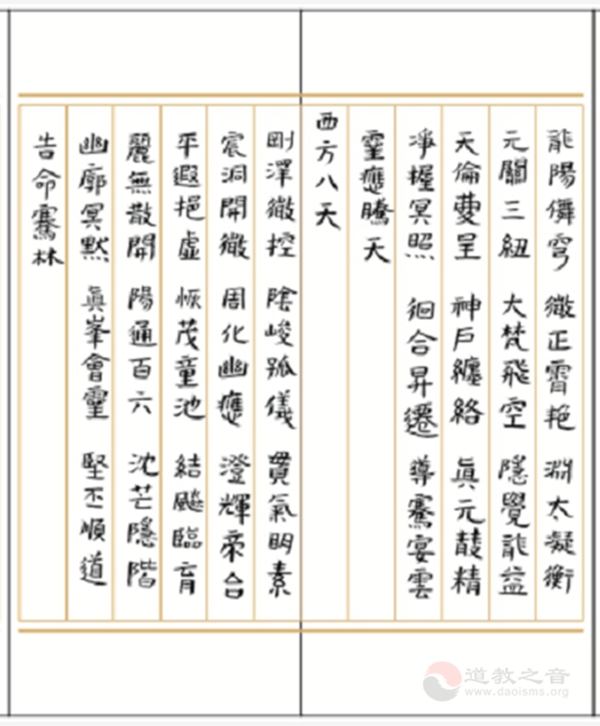 能陽儛穹 微正霄艳 淵太凝衡
元關三紐 大梵飛空 隱覺能益
天倫蔓呈 神戶纏絡 真元皷精
淨握冥照 徊合昇遷 導騫宴雲
霊應騰天
西方八天
剛澤徹控 陰峻孤儀 貫氣明素
宸洞開徹 周化幽應 澄輝帝合
平遐挹虛 恢茂童池 結飈臨育
麗無散開 陽通百六 沈芒隱階
幽廓冥默 真峯會霊 堅丕順道
告命騫林
道教之音
www.daoisms.org